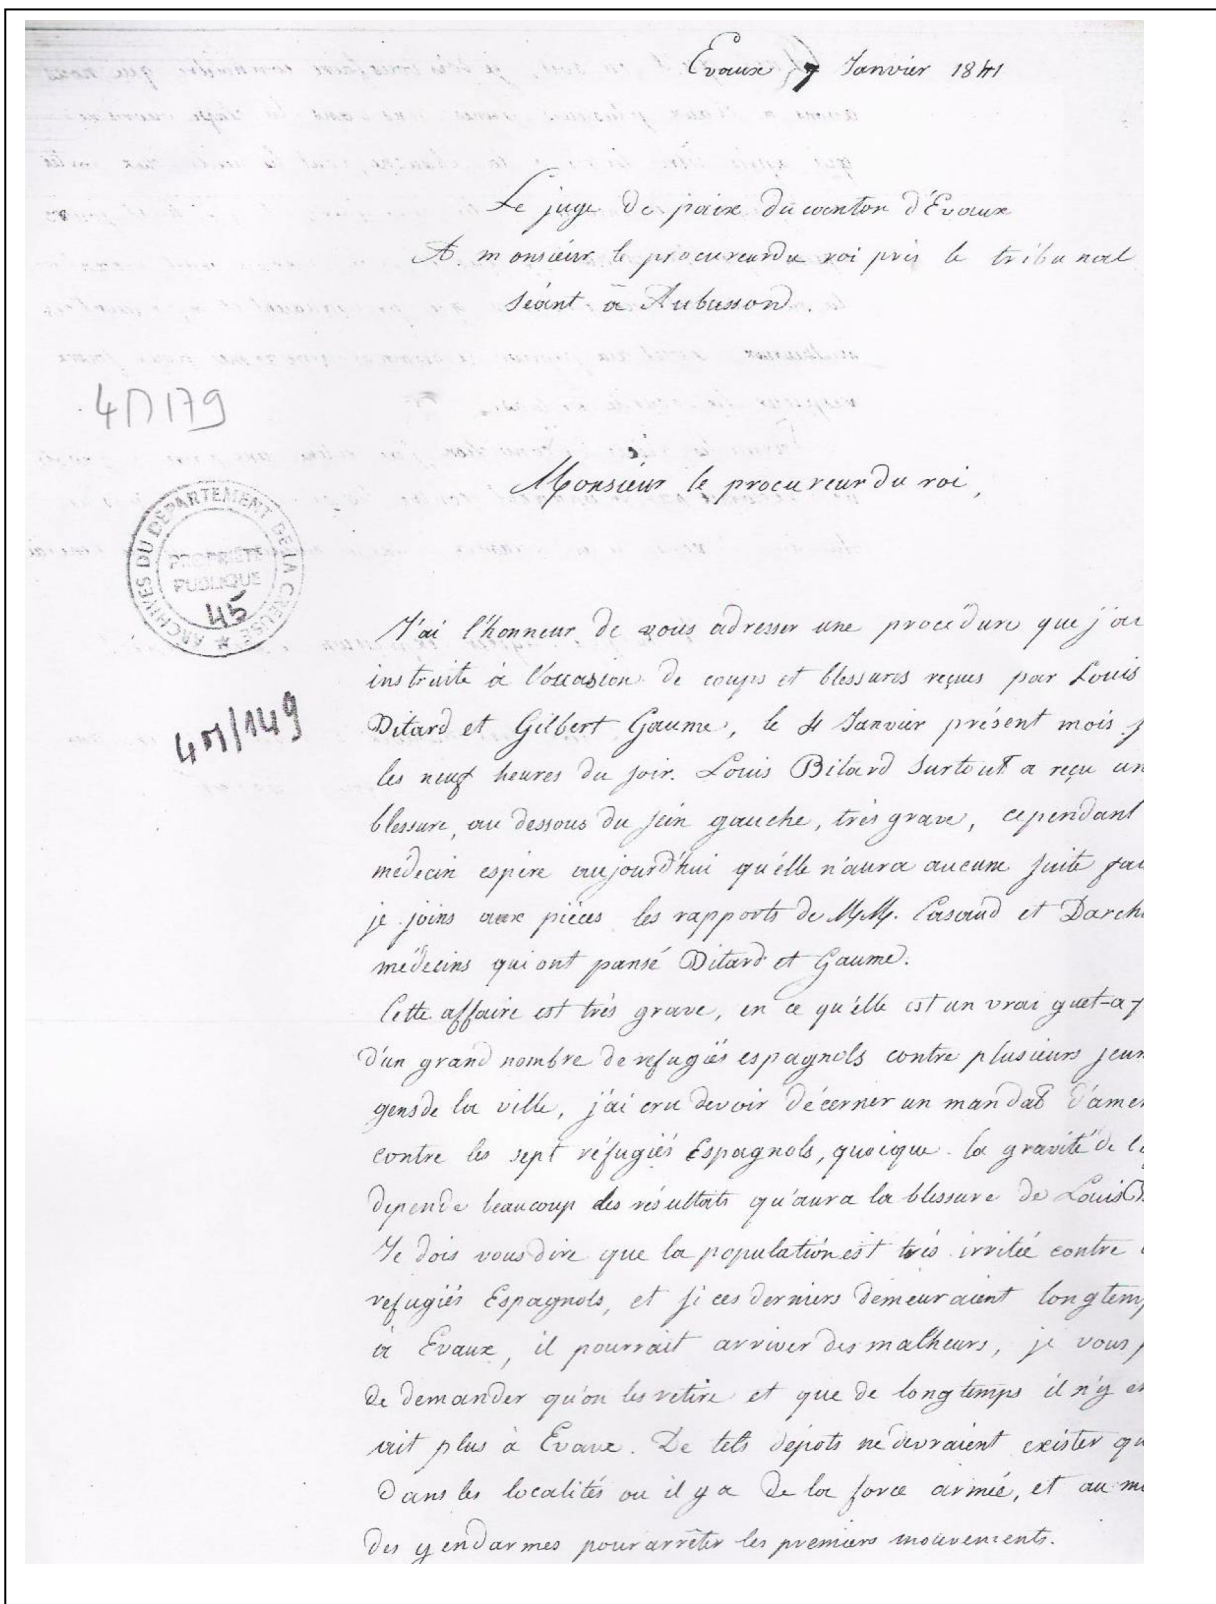 Evaux 7 Janvier 1841
Le juge de paix du canton d'Evaux
A monsieur le procureur du roi près le tribunal
séant à Aubusson.
4M179
Monsieur le procureur du roi,
ARCHIVES DU DEPARTEMENT DE LA CREUSE
PROPRIÉTÉ
PUBLIQUE
45
J'ai l'honneur de vous adresser une procédure que j'ai
instruite à l'occasion de coups et blessures reçues par Louis
4M/149
Ditard et Gilbert Gaume, le 4 Janvier présent mois
les neuf heures du soir. Louis Bitard surtout a reçu un
blessure, au dessous du sein gauche, très grave, cependant
médecin espère aujourd'hui qu'élle n'aura aucune suite
je joins aux pièces les rapports de MM. Casaud et Darch
médecins qui ont pansé Ditard et Gaume.
Cette affaire est très grave, en ce qu'élle est un vrai guet-a
d'un grand nombre de refugiés espagnols contre plusieurs jeun
gens de la ville, j'ai cru devoir décerner un mandat d'amen
contre les sept réfugiés Espagnols, quoique la gravité de l
depende beaucoup des résultats qu'aura la blessure de Louis
Je dois vous dire que la population est très irritée contre
refugiés Espagnols, et si ces derniers demeuraient longtemp
à Evaux, il pourrait arriver des malheurs, je vous
de demander qu'on les retire et que de longtemps il n'y en
ait plus à Evaux. De tels dépots ne devraient exister qu
dans les localités ou il y a de la force armée, et au m
des gendarmes pour arrêter les premiers mouvements.